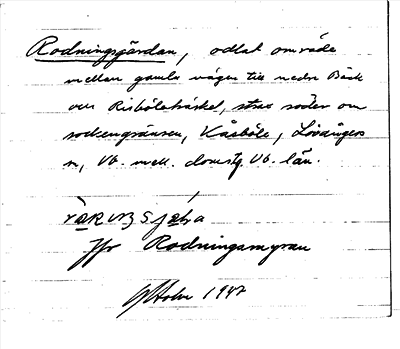 Rodningsgärdan, odlat område
mellan gamla vägen till nedre Bäck
och Risböleträsket, strax söder om
sockengränsen, Kåsböle, Lövångers
sn, Vb. mell. domsg. Vb. län.
Jfr Rodningsmyran
Holm 1947